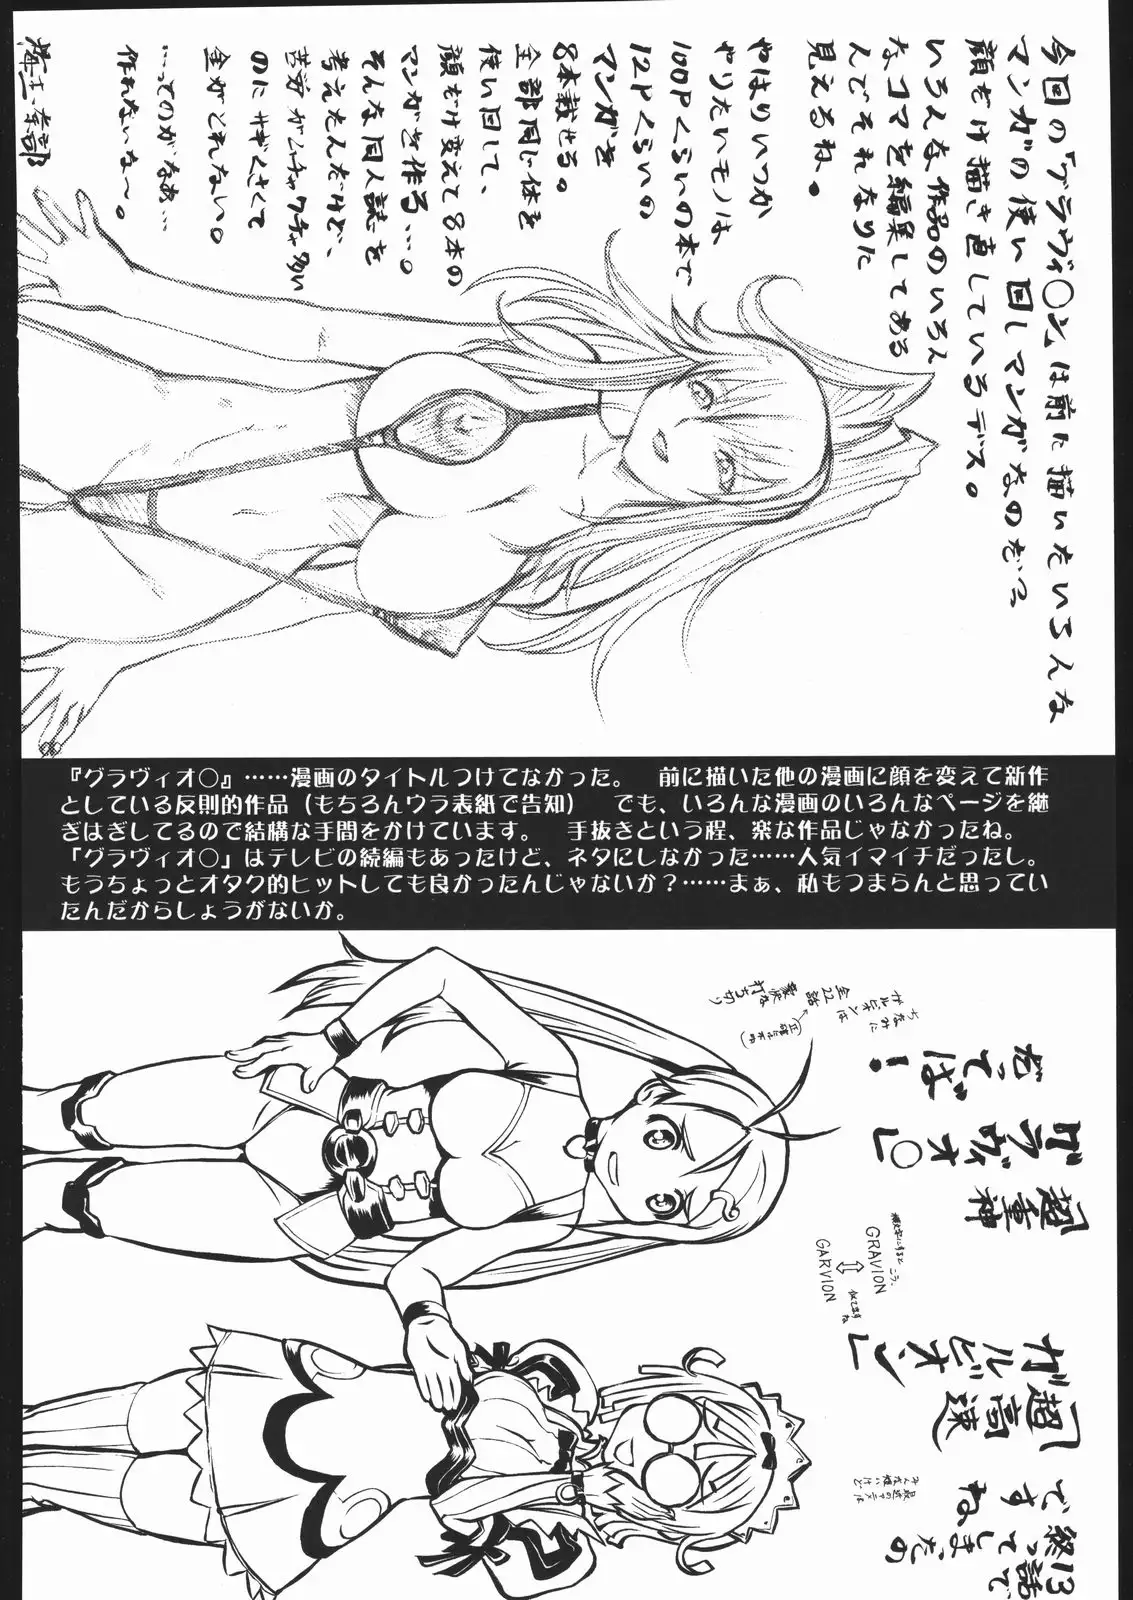 今回の「グラヴィ○ン」は前に描いたいろんな
マンガの使い回しマンガなのだっ
顔だけ描き直しているデス。
いろんな作品のいろん
なコマを編集してある
んでそれなりに
見えるね。
やはりいつか
やりたいモノは
100Pくらいの本で
12Pくらいの
マンガを
8本載せる。
全部同じ体を
使い回して、
顔だけ変えて8本の
マンガを作る…。
そんな同人誌を
考えたんだけど、
苦労がムチャクチャ多い
のにサギくさくて
金がとれない。
…ってのがなあ…
作れないな〜。
『グラヴィオ○』……漫画のタイトルつけてなかった。　前に描いた他の漫画に顔を変えて新作
としている反則的作品（もちろんウラ表紙で告知）　でも、いろんな漫画のいろんなページを継
ぎはぎしてるので結構な手間をかけています。　手抜きという程、楽な作品じゃなかったね。
「グラヴィオ○」はテレビの続編もあったけど、ネタにしなかった……人気イマイチだったし。
もうちょっとオタク的ヒットしても良かったんじゃないか？……まぁ、私もつまらんと思ってい
たんだからしょうがないか。
「超重神
グラヴィオ○」
だってば！
ちなみに
ガルビオンは
全22話
(正確には不明)
打ち切り
GRAVION
⇕
GARVION
似てますね
「超高速
ガルビオン」
13話で
終ってしまったの
ですね